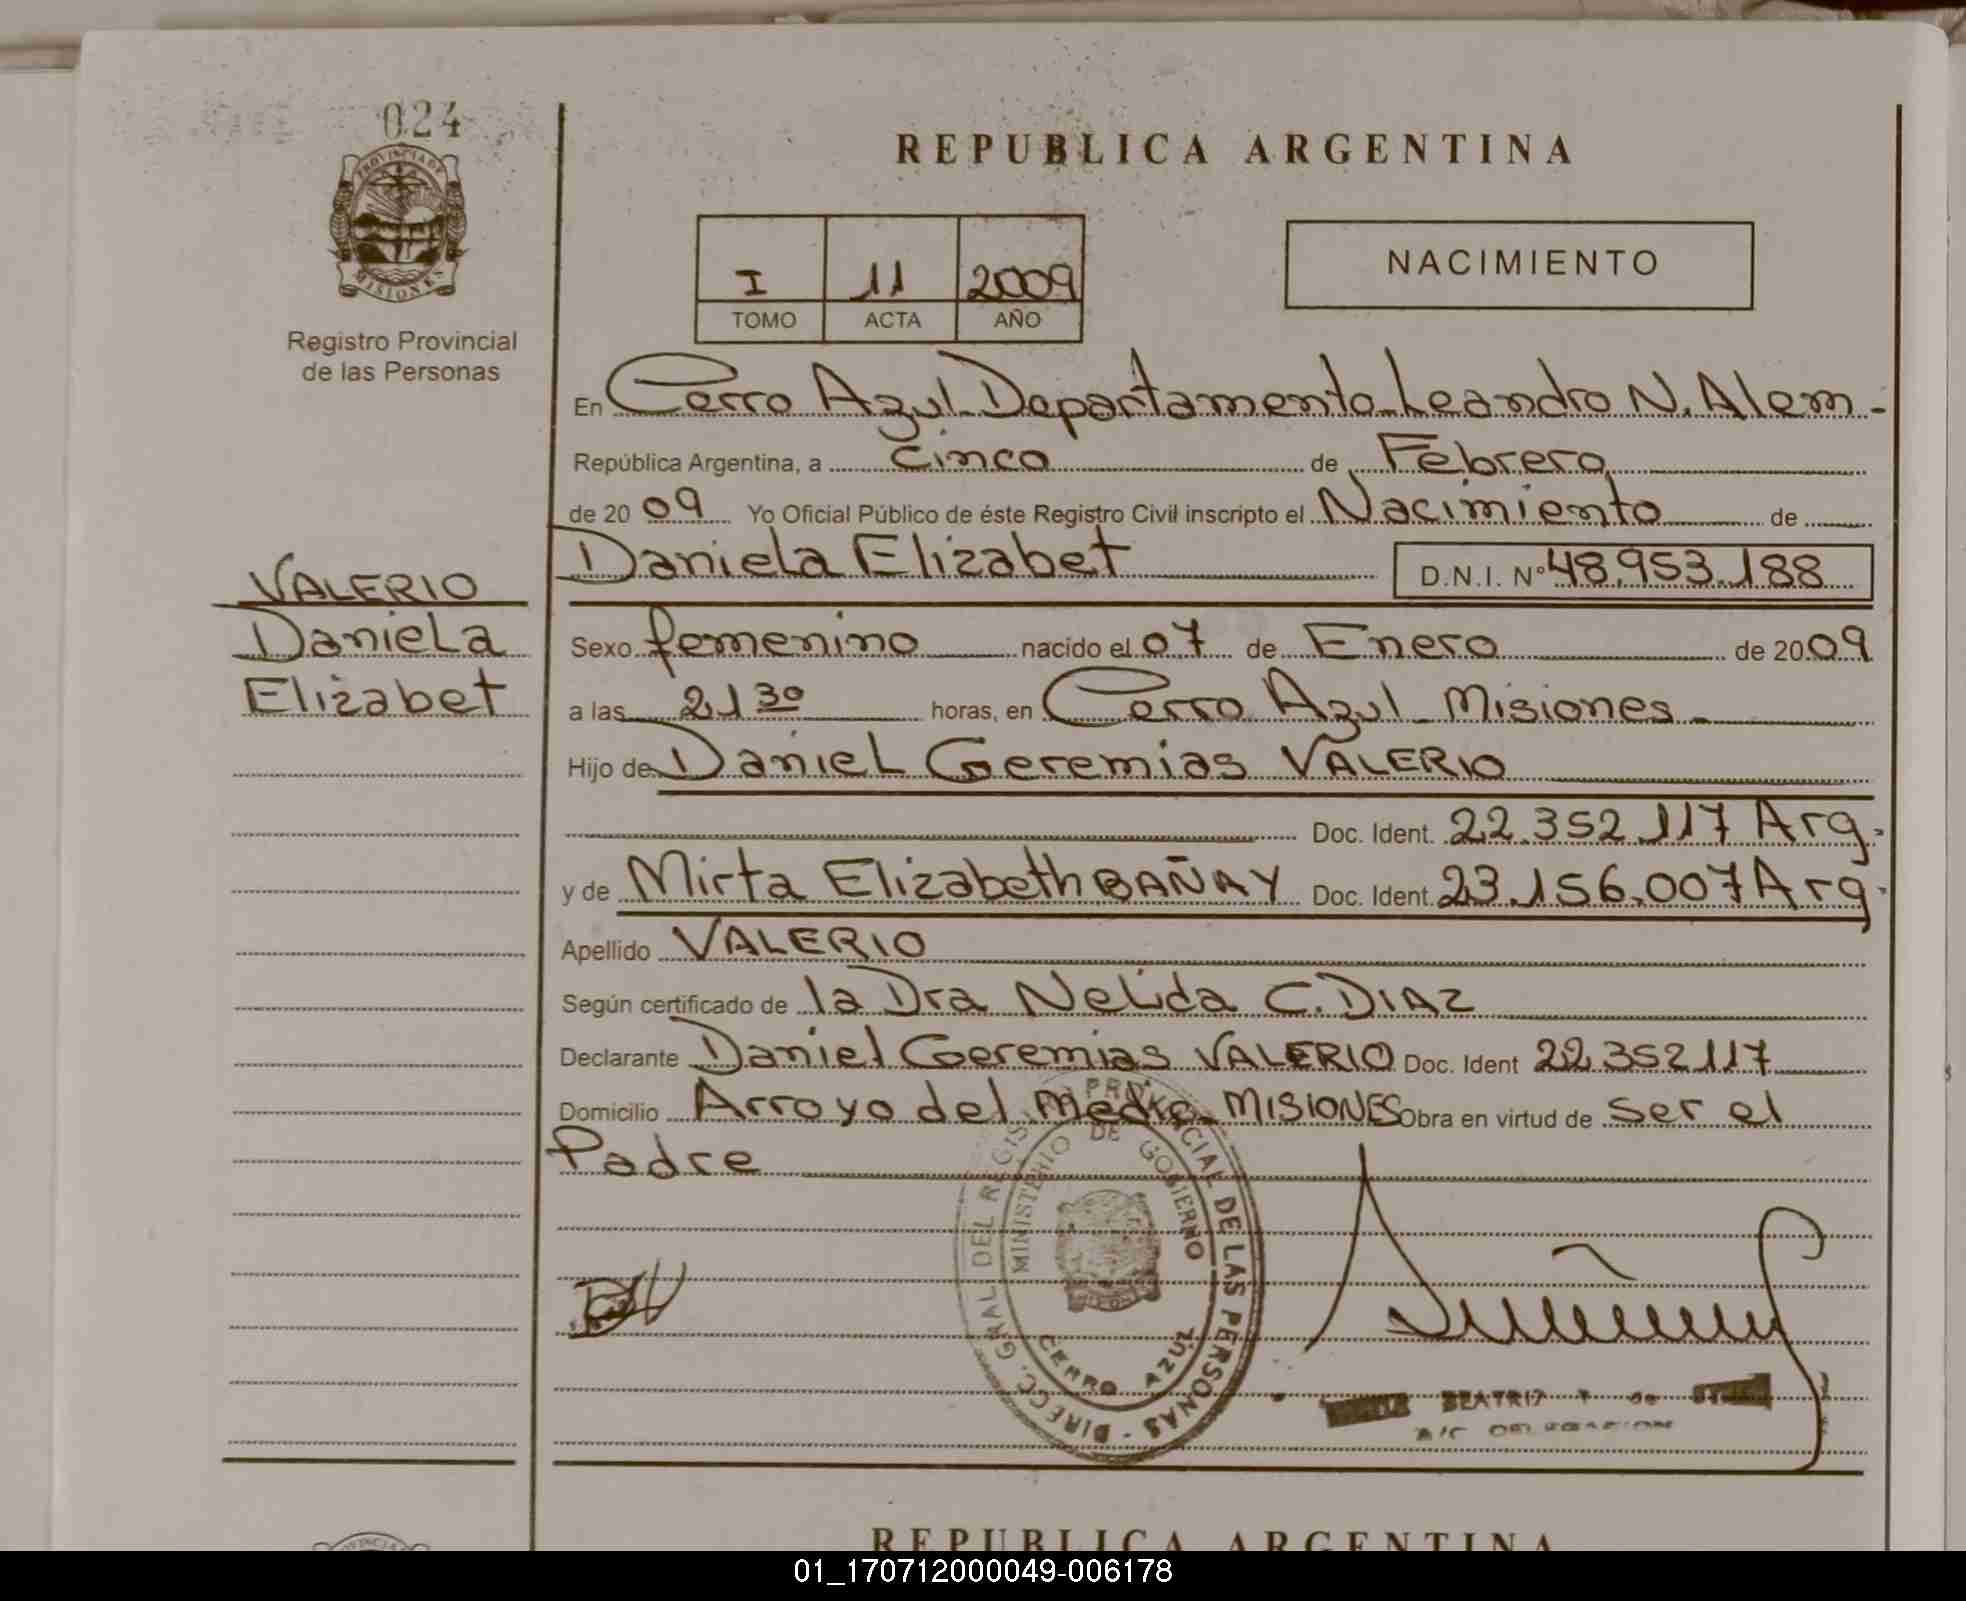 024
PROVINCIA DE
MISIONES
Registro Provincial
de las Personas
VALERIO
Daniela
Elizabet
REPUBLICA ARGENTINA
I 11 2009
TOMO ACTA AÑO
NACIMIENTO
En Cerro Azul Departamento Leandro N. Alem -
República Argentina, a cinco de Febrero
de 20 09 Yo Oficial Público de éste Registro Civil inscripto el Nacimiento de
Daniela Elizabet D.N.I. Nº 48.953.188
Sexo femenino nacido el 07 de Enero de 20 09
a las 21 30 horas, en Cerro Azul - Misiones -
Hijo de Daniel Geremias VALERIO
Doc. Ident. 22.352.117 Arg.
y de Mirta Elizabeth BAÑAY Doc. Ident. 23.156.007 Arg.
Apellido VALERIO
Según certificado de la Dra Nelida C. DIAZ
Declarante Daniel Geremias VALERIO Doc. Ident 22.352.117
Domicilio Arroyo del Medio - MISIONES Obra en virtud de ser el
Padre
DIRECC. GRAL DEL REGIST. PROVINCIAL DE LAS PERSONAS -
MINISTERIO DE GOBIERNO
CERRO AZUL
BEATRIZ
A/C DELEGACION
REPUBLICA ARGENTINA
01_170712000049-006178